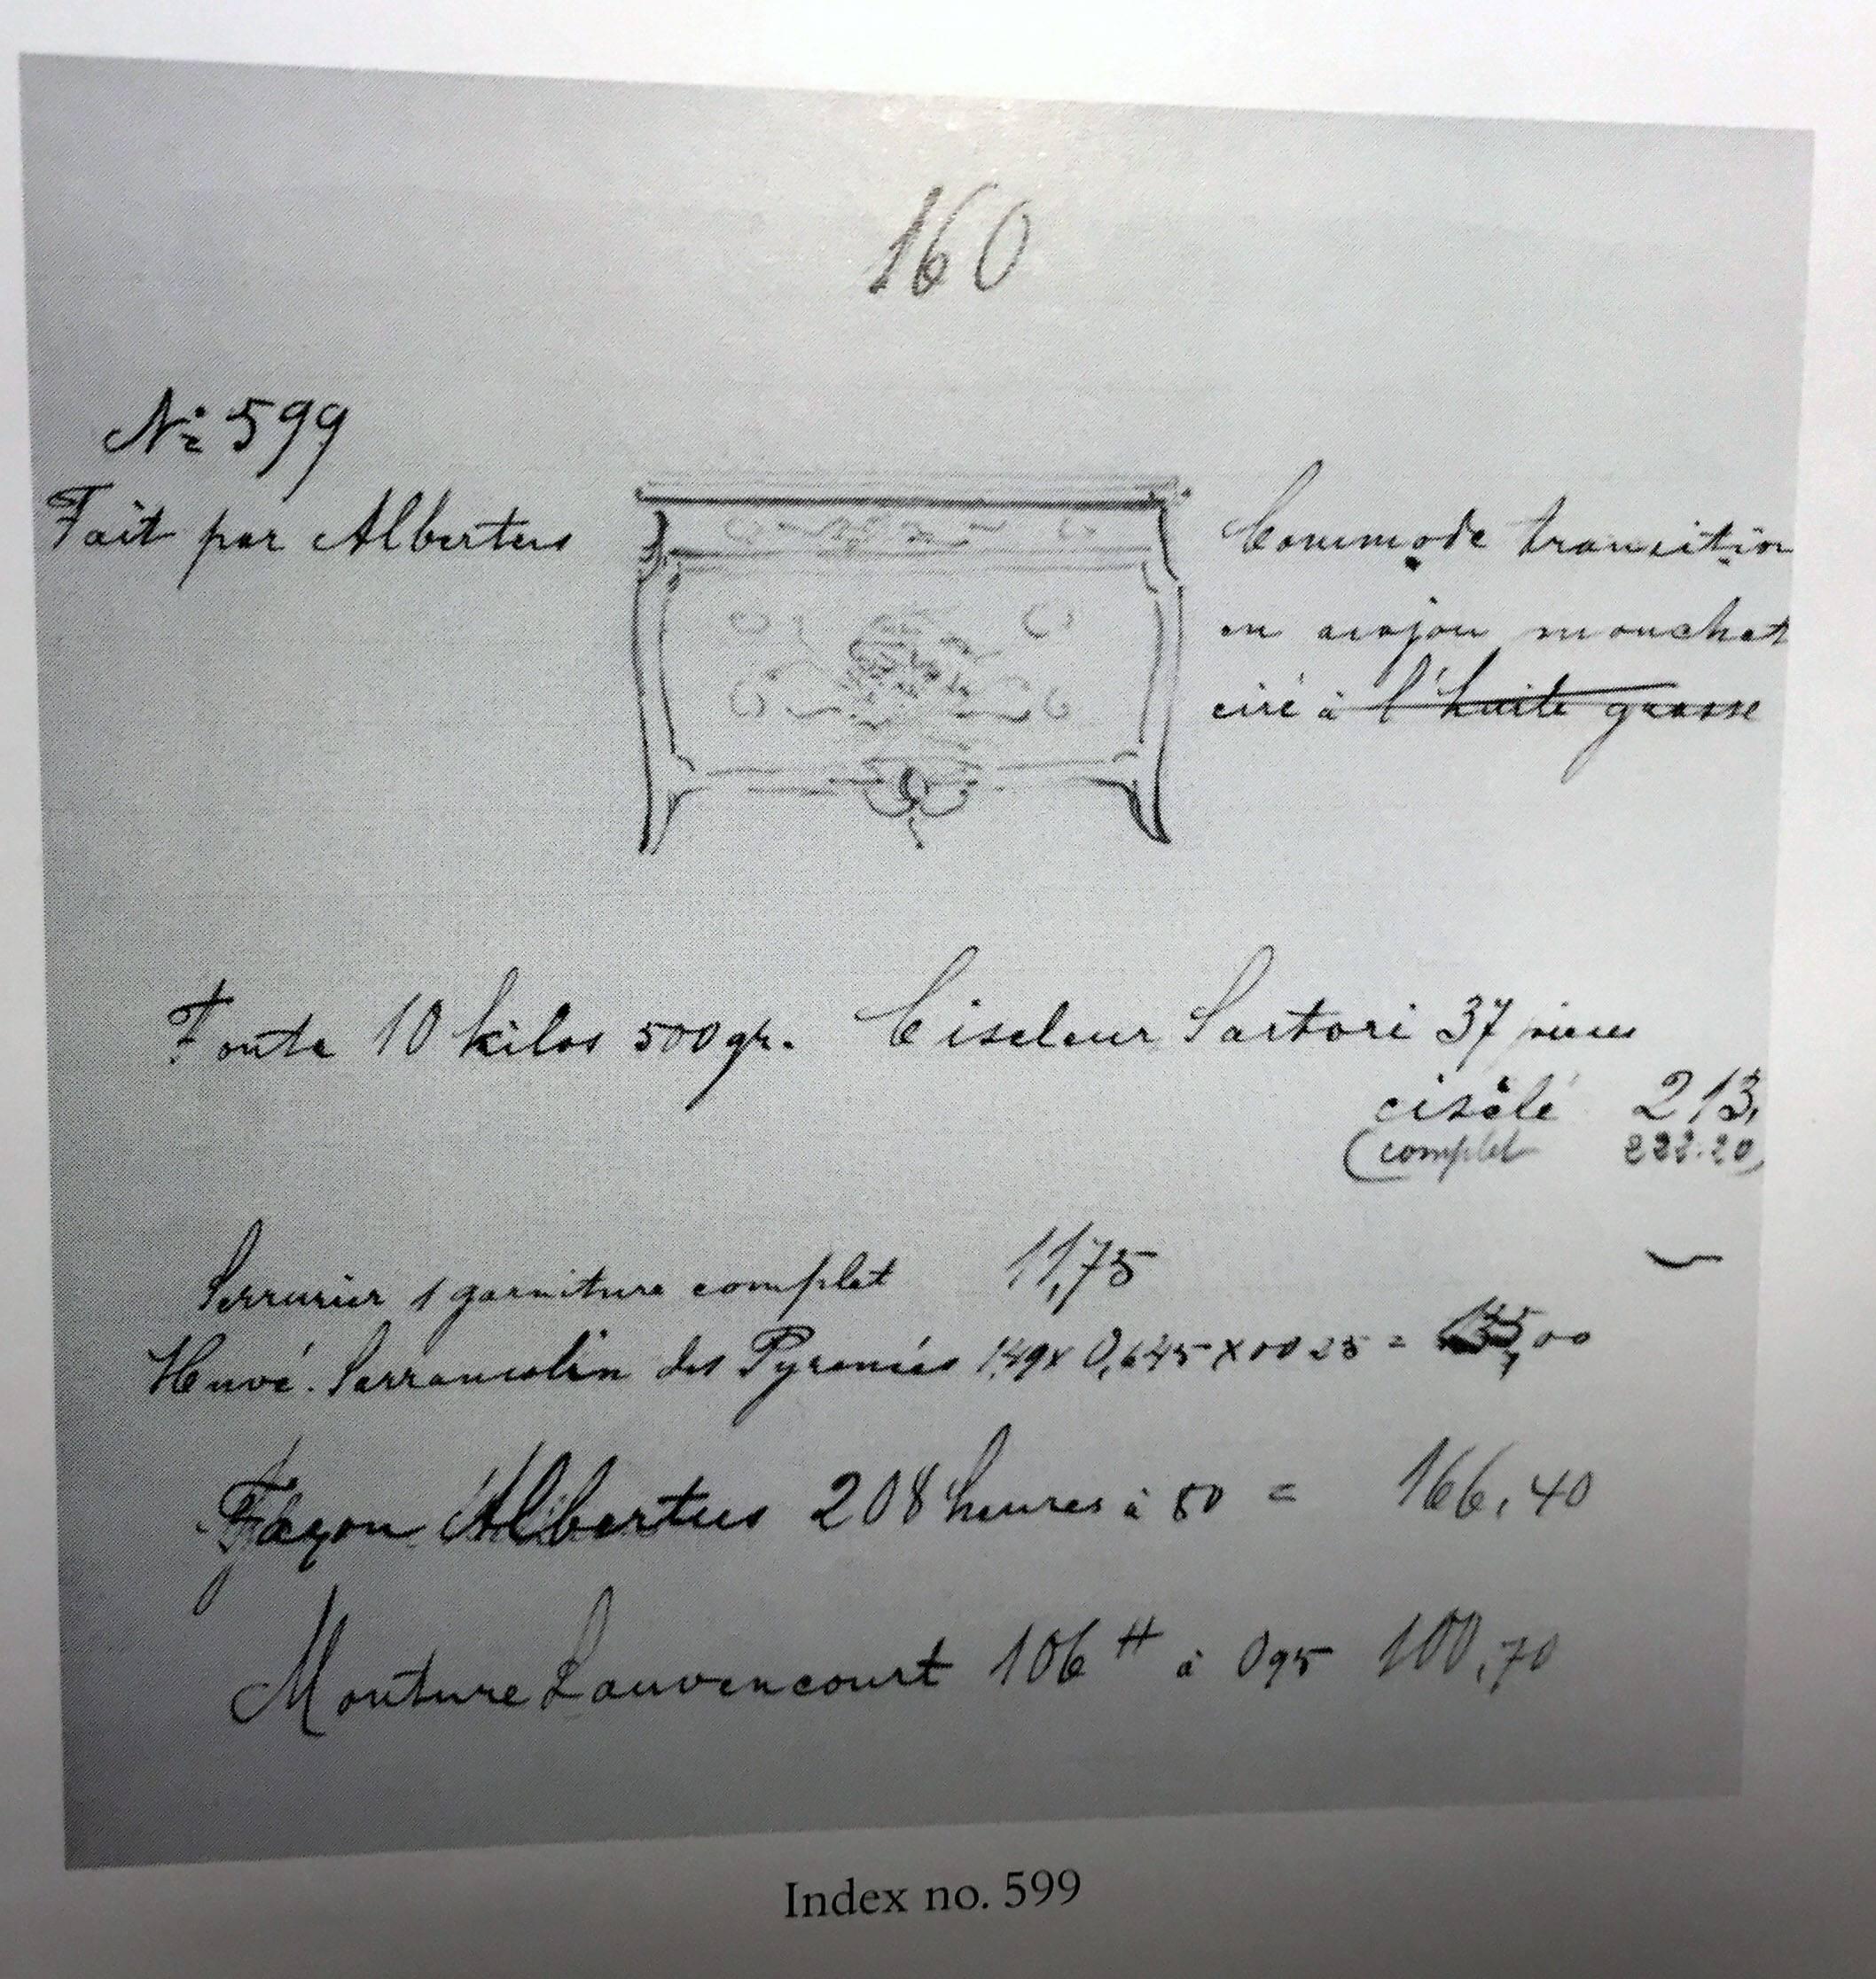 160
No 599
Fait par Albertus
Commode transition
en acajou mouchet
ciré à l'huile grasse
Fonte 10 kilos 500 gr. Ciseleur Sartori 37 pieces
cisélé 213,
(complet 222.20)
Serrurier 1 garniture complet 11,75
Huvé. Sarrancolin des Pyrenées 1,49 x 0,645 x 0025 = 135,00
Façon Albertus 208 heures à 80 = 166,40
Monture Lauvencourt 106 H à 095 100,70
Index no. 599